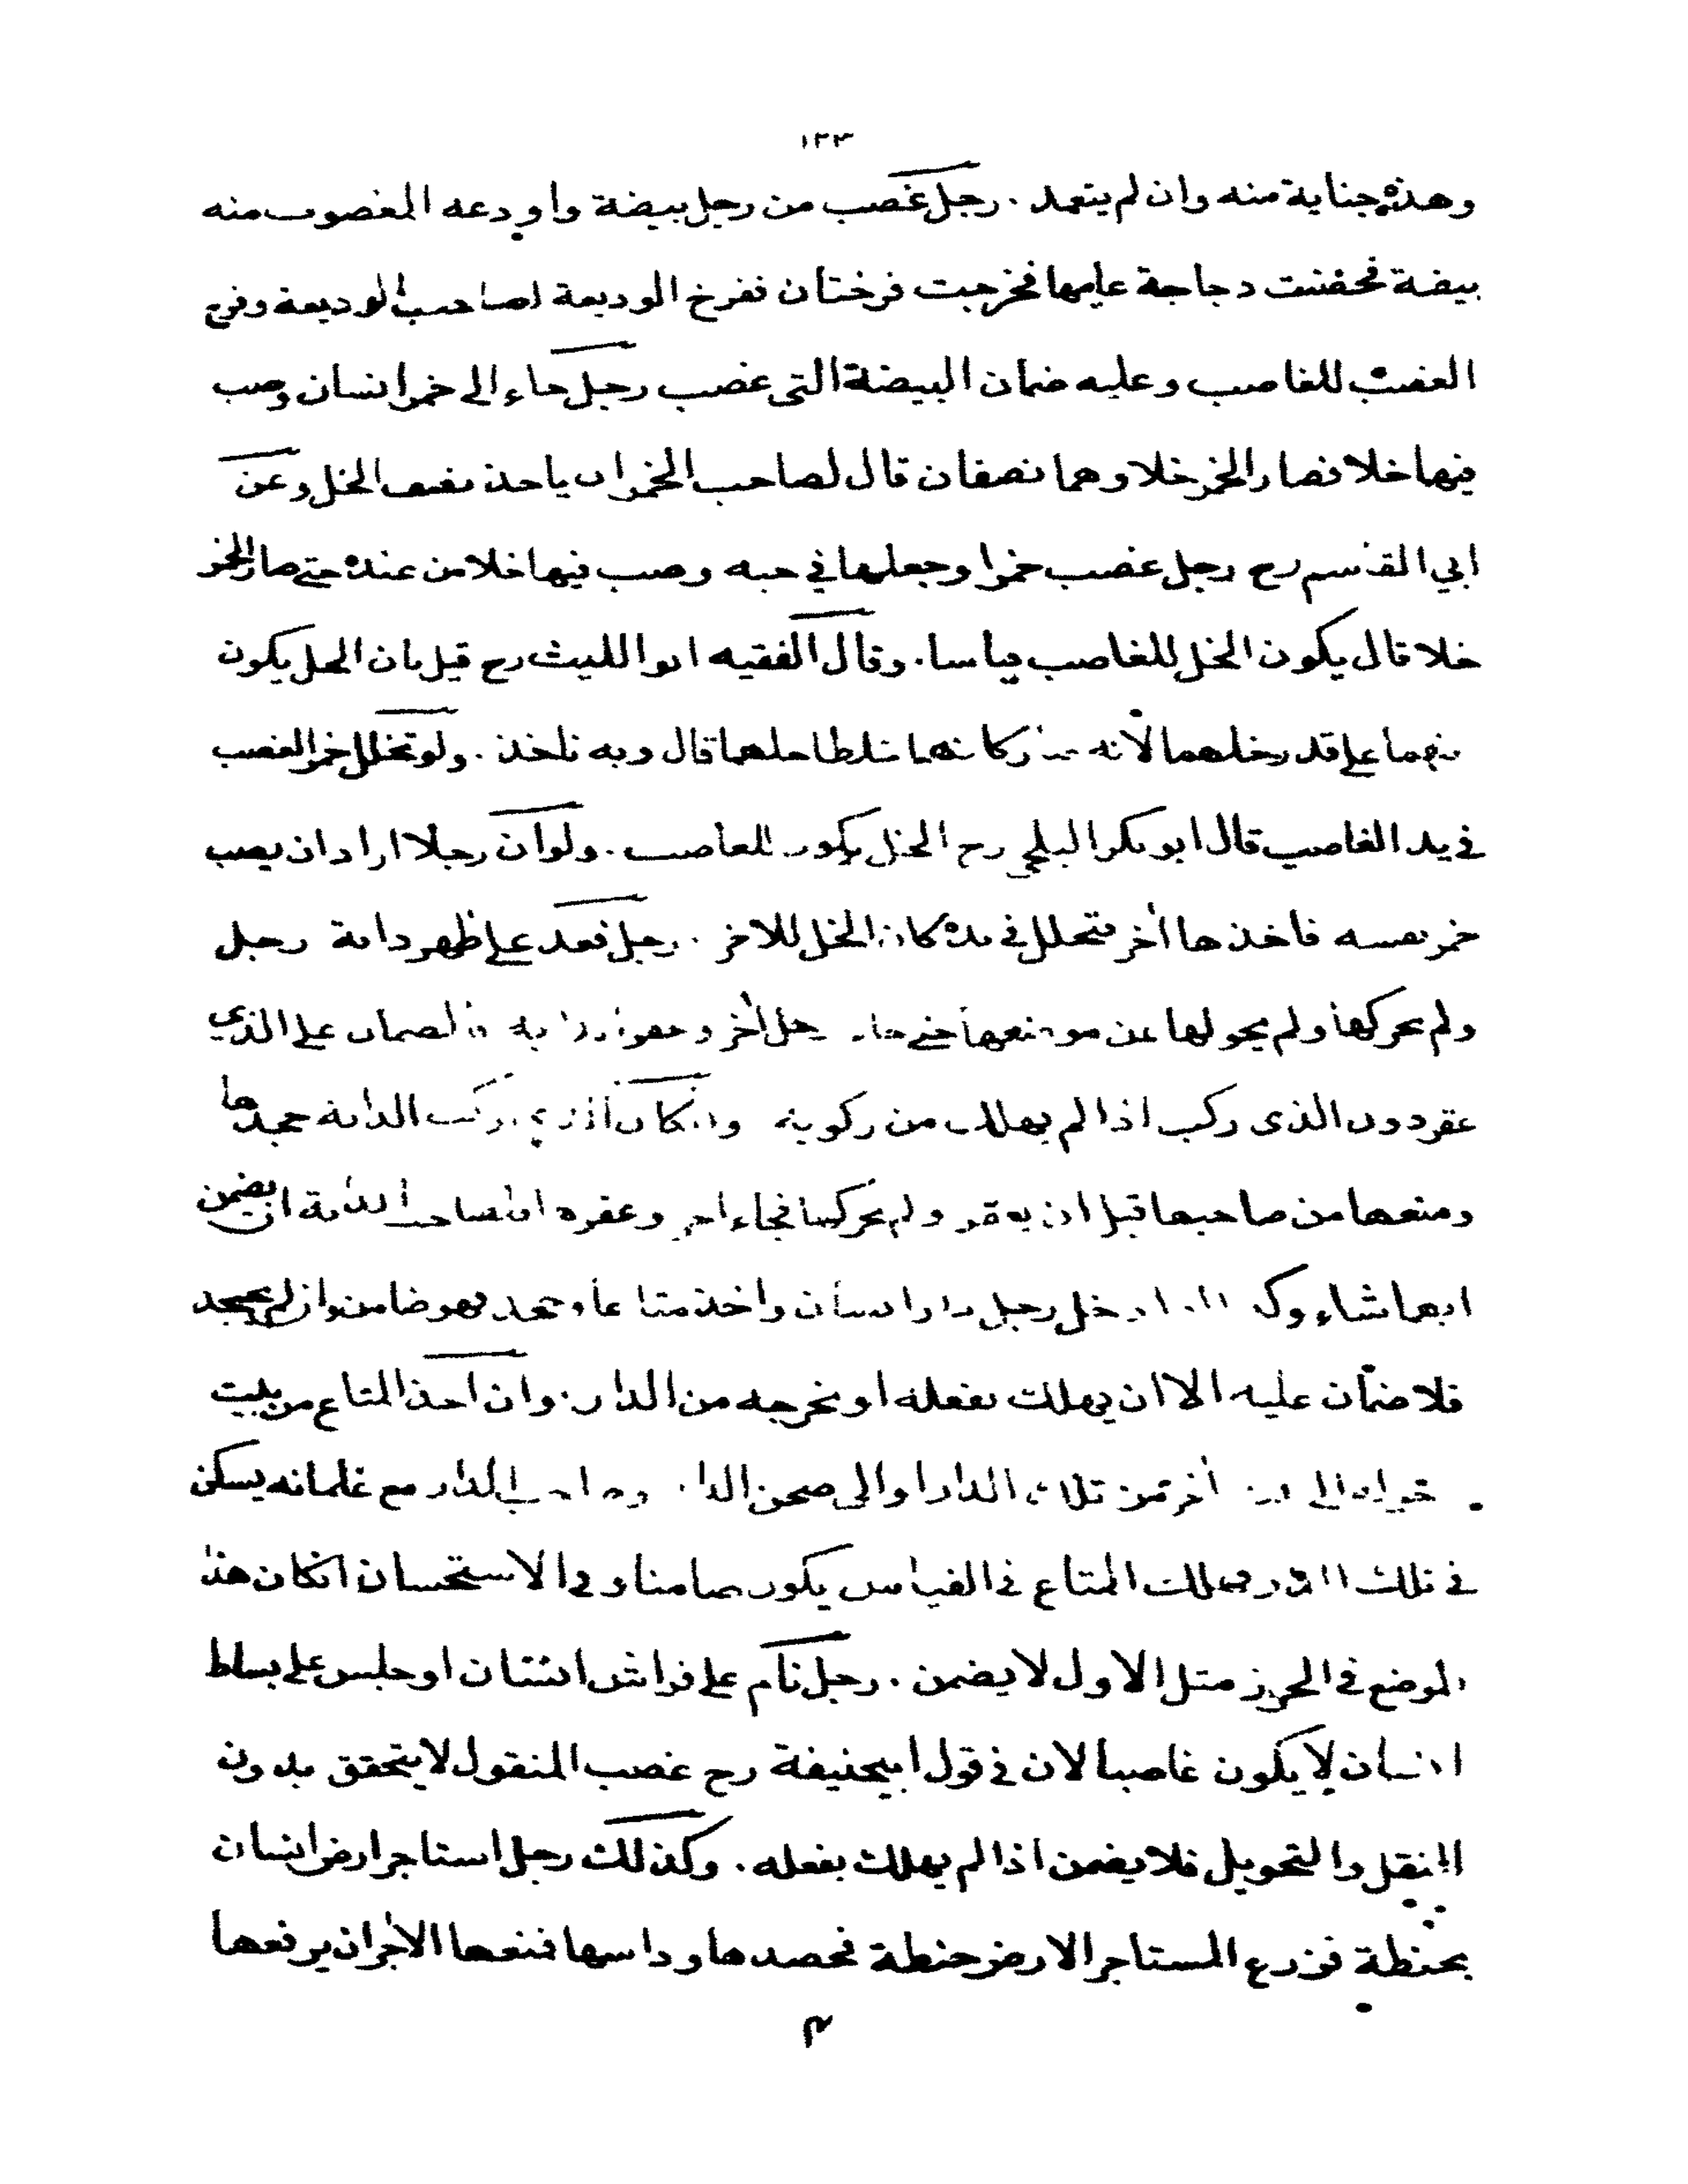 ١٢٣
وهذه جناية منه وان لم يتعمد . رجل غصب من رجل بيضة واودعه المغصوب منه
بيضة فحضنت دجاجة عليها فخرجت فرختان ففرخ الوديعة لصاحب الوديعة وفرخ
الغصب للغاصب وعليه ضمان البيضة التى غصب رجل جاء الى خمر انسان وصب
فيها خلا فصار الخمر خلا وهما نصفان قال لصاحب الخمر ان ياخذ نصف الخل وعن
ابي القاسم رح رجل غصب خمرا وجعلها في حبه وصب فيها خلا من عنده حتى صار الخمر
خلا قال يكون الخل للغاصب قياسا . وقال الفقيه ابو الليث رح قيل بان الخل يكون
بينهما على قدر خلهما لانه كانهما خلطا خلهما قال وبه ناخذ . ولو تخلل خمر الغصب
في يد الغاصب قال ابو بكر البلخي رح الخل يكون للغاصب . ولو ان رجلا اراد ان يصب
خمر نفسه فاخذها أخر فتخلل في يده كان الخل للاخر . رجل قعد على ظهر دابة رجل
ولم يحركها ولم يحولها عن موضعها حتى جاء رجل أخر وعقر الدابة فالضمان على الذي
عقر دون الذى ركب اذا لم يهلك من ركوبه وان كان الذي ركب الدابة جحدها
ومنعها من صاحبها قبل ان يعقر ولم يحركها فجاء اخر وعقره فلصاحب الدابة ان يضمن
ايهما شاء وكذا اذا دخل رجل دار انسان واخذ متاعا وجحد فهو ضامن وان لم يجحد
فلا ضمان عليه الا ان يهلك بفعله او يخرجه من الدار . وان اخذ المتاع من بيت
الى بيت أخر من تلك الدار او الى صحن الدار وصاحب الدار مع غلمانه يسكن
في تلك الدار فهلك المتاع في القياس يكون ضامنا وفي الاستحسان انكان هذا
الموضع في الحرز مثل الاول لا يضمن . رجل نام على فراش انسان او جلس على بساط
انسان لا يكون غاصبا لان في قول ابيحنيفة رح غصب المنقول لا يتحقق بدون
النقل والتحويل فلا يضمن اذا لم يهلك بفعله . وكذلك رجل استاجر ارض انسان
بحنطة فزرع المستاجر الارض حنطة فحصدها وداسها فمنعها الأجر ان يرفعها